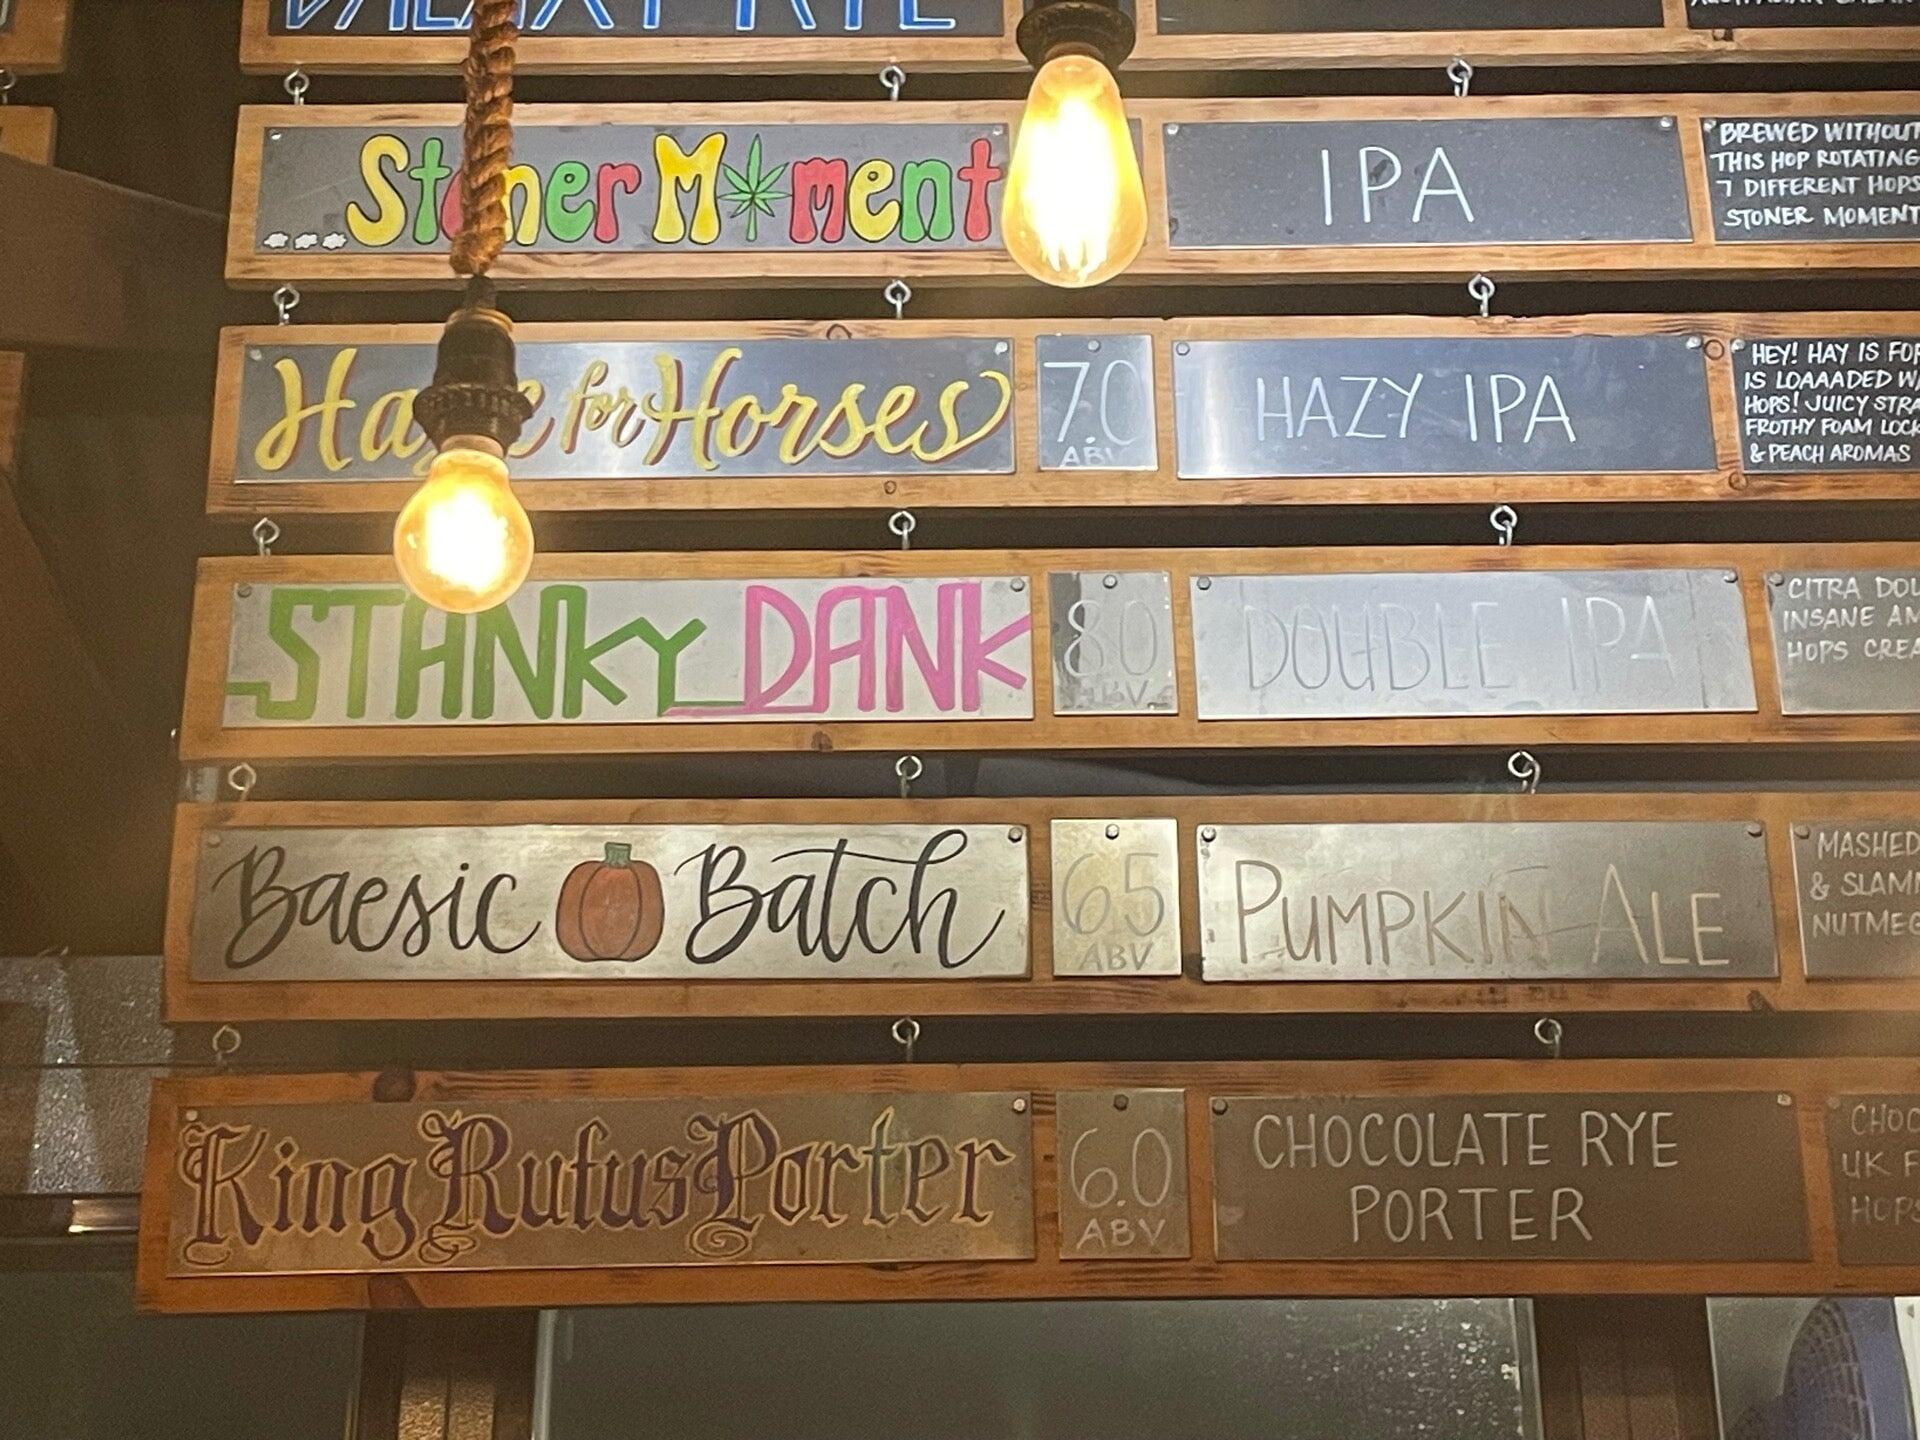 GALAXY RYE
Stoner Moment
IPA
BREWED WITHOUT
THIS HOP ROTATING
7 DIFFERENT HOPS
STONER MOMENT
Haze for Horses
7.0
ABV
HAZY IPA
HEY! HAY IS FOR
IS LOAAADED W/
HOPS! JUICY STRA
FROTHY FOAM LOCK
& PEACH AROMAS
STANKY DANK
8.0
ABV
DOUBLE IPA
CITRA DOU
INSANE AM
HOPS CREA
Baesic Batch
6.5
ABV
PUMPKIN ALE
MASHED
& SLAMM
NUTMEG
King Rufus Porter
6.0
ABV
CHOCOLATE RYE
PORTER
CHOC
UK F
HOPS